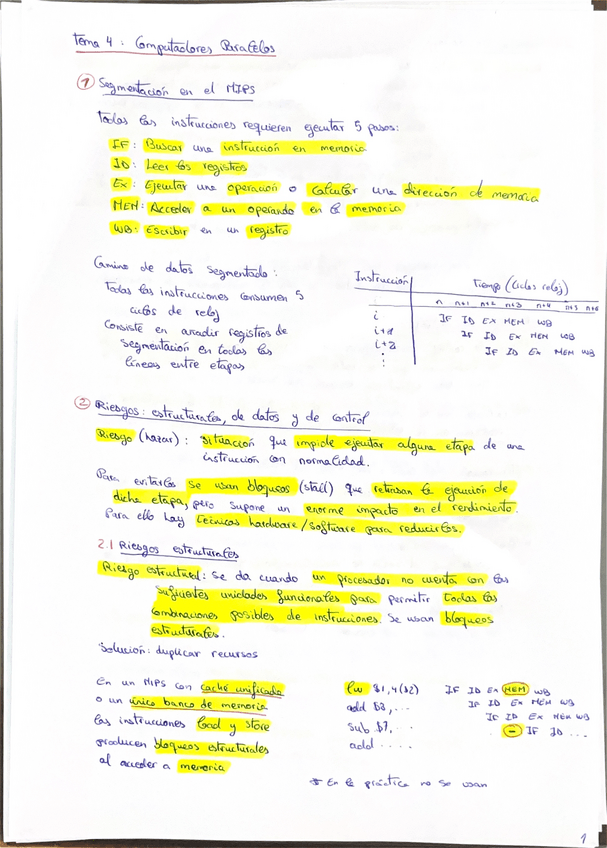 Tema 4: Computadores Paralelos
1 Segmentación en el MIPS
Todas las instrucciones requieren ejecutar 5 pasos:
IF: Buscar una instrucción en memoria
ID: Leer los registros
Ex: Ejecutar una operación o calcular una dirección de memoria
MEM: Acceder a un operando en la memoria
WB: Escribir en un registro
Camino de datos segmentado:
Todas las instrucciones consumen 5
ciclos de reloj
Consiste en añadir registros de
segmentación en todas las
líneas entre etapas
Instrucción Tiempo (ciclos reloj)
n n+1 n+2 n+3 n+4 n+5 n+6
i IF ID EX MEM WB
i+1 IF ID EX MEM WB
i+2 IF ID Ex MEM WB
⋮
2 Riesgos: estructurales, de datos y de control
Riesgo (hazar): situación que impide ejecutar alguna etapa de una
instrucción con normalidad.
Para evitarlos se usan bloqueos (stall) que retrasan la ejecución de
dicha etapa, pero supone un enorme impacto en el rendimiento.
Para ello hay técnicas hardware/software para reducirlos.
2.1 Riesgos estructurales
Riesgo estructural: Se da cuando un procesador no cuenta con las
suficientes unidades funcionales para permitir todas las
combinaciones posibles de instrucciones. Se usan bloqueos
estructurales.
Solución: duplicar recursos
En un MIPS con caché unificada
o un único banco de memoria
las instrucciones load y store
producen bloqueos estructurales
al acceder a memoria
lw $1,4($2) IF ID Ex MEM WB
add $3,... IF ID Ex MEM WB
sub $7,... IF ID Ex MEM WB
add .... - IF ID ...
* En la práctica no se usan
1